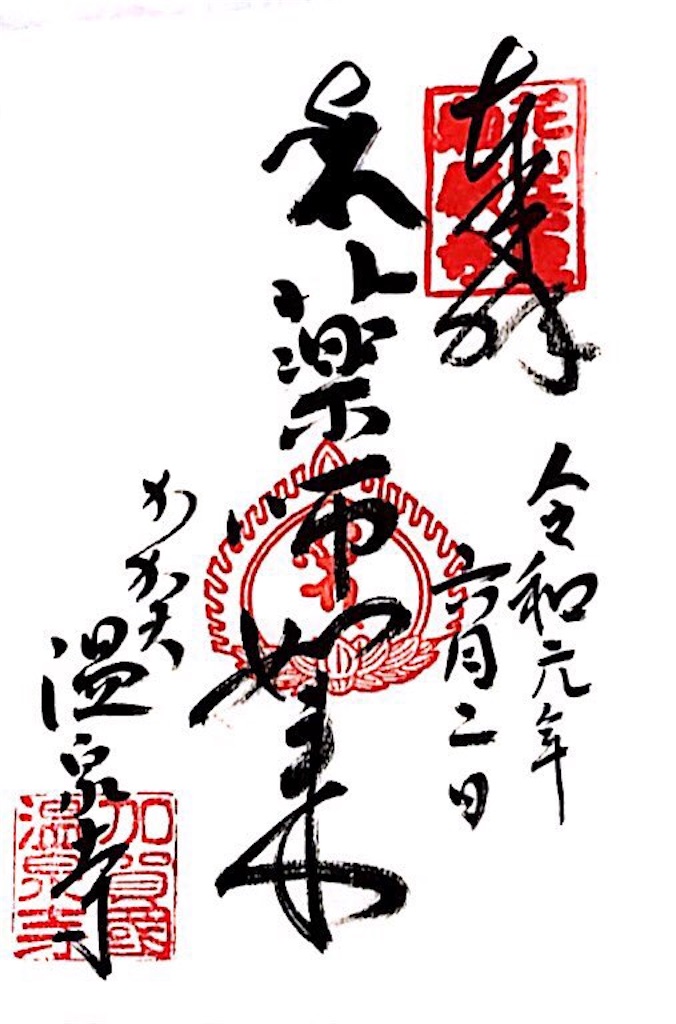 奉拝
令和元年
六月二日
薬師如来
温泉寺
加賀國
温泉寺